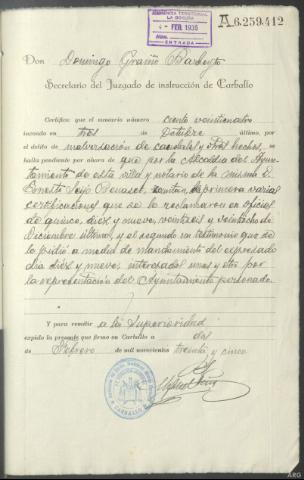 AUDIENCIA TERRITORIAL
LA CORUÑA
4 - FEB 1935
Núm.
ENTRADA
A.6.259.412
Don Domingo Barbeyto
Secretario del Juzgado de instrucción de Carballo
Certifico que el sumario número ciento veinticuatro
incoado en tres de Octubre último, por el
delito de malversación de caudales y otros hechos, se
halla pendiente por ahora de que por la Alcaldía del Ayun-
tamiento de esta villa y notario de la misma D.
Ernesto Seijo remitan, la primera varias
certificaciones que se le reclamaron en oficios
de quince, diez y nueve, veintiseis y veintiocho de
Diciembre último, y el segundo un testimonio que se
le pidió a medio de mandamiento del expresado
día diez y nueve, interesados unas y otro por
la representación del Ayuntamiento personado.
Y para remitir a la Superioridad
expido la presente que firmo en Carballo a dos
de Febrero de mil novecientos treinta y cinco
CARBALLO
ARG